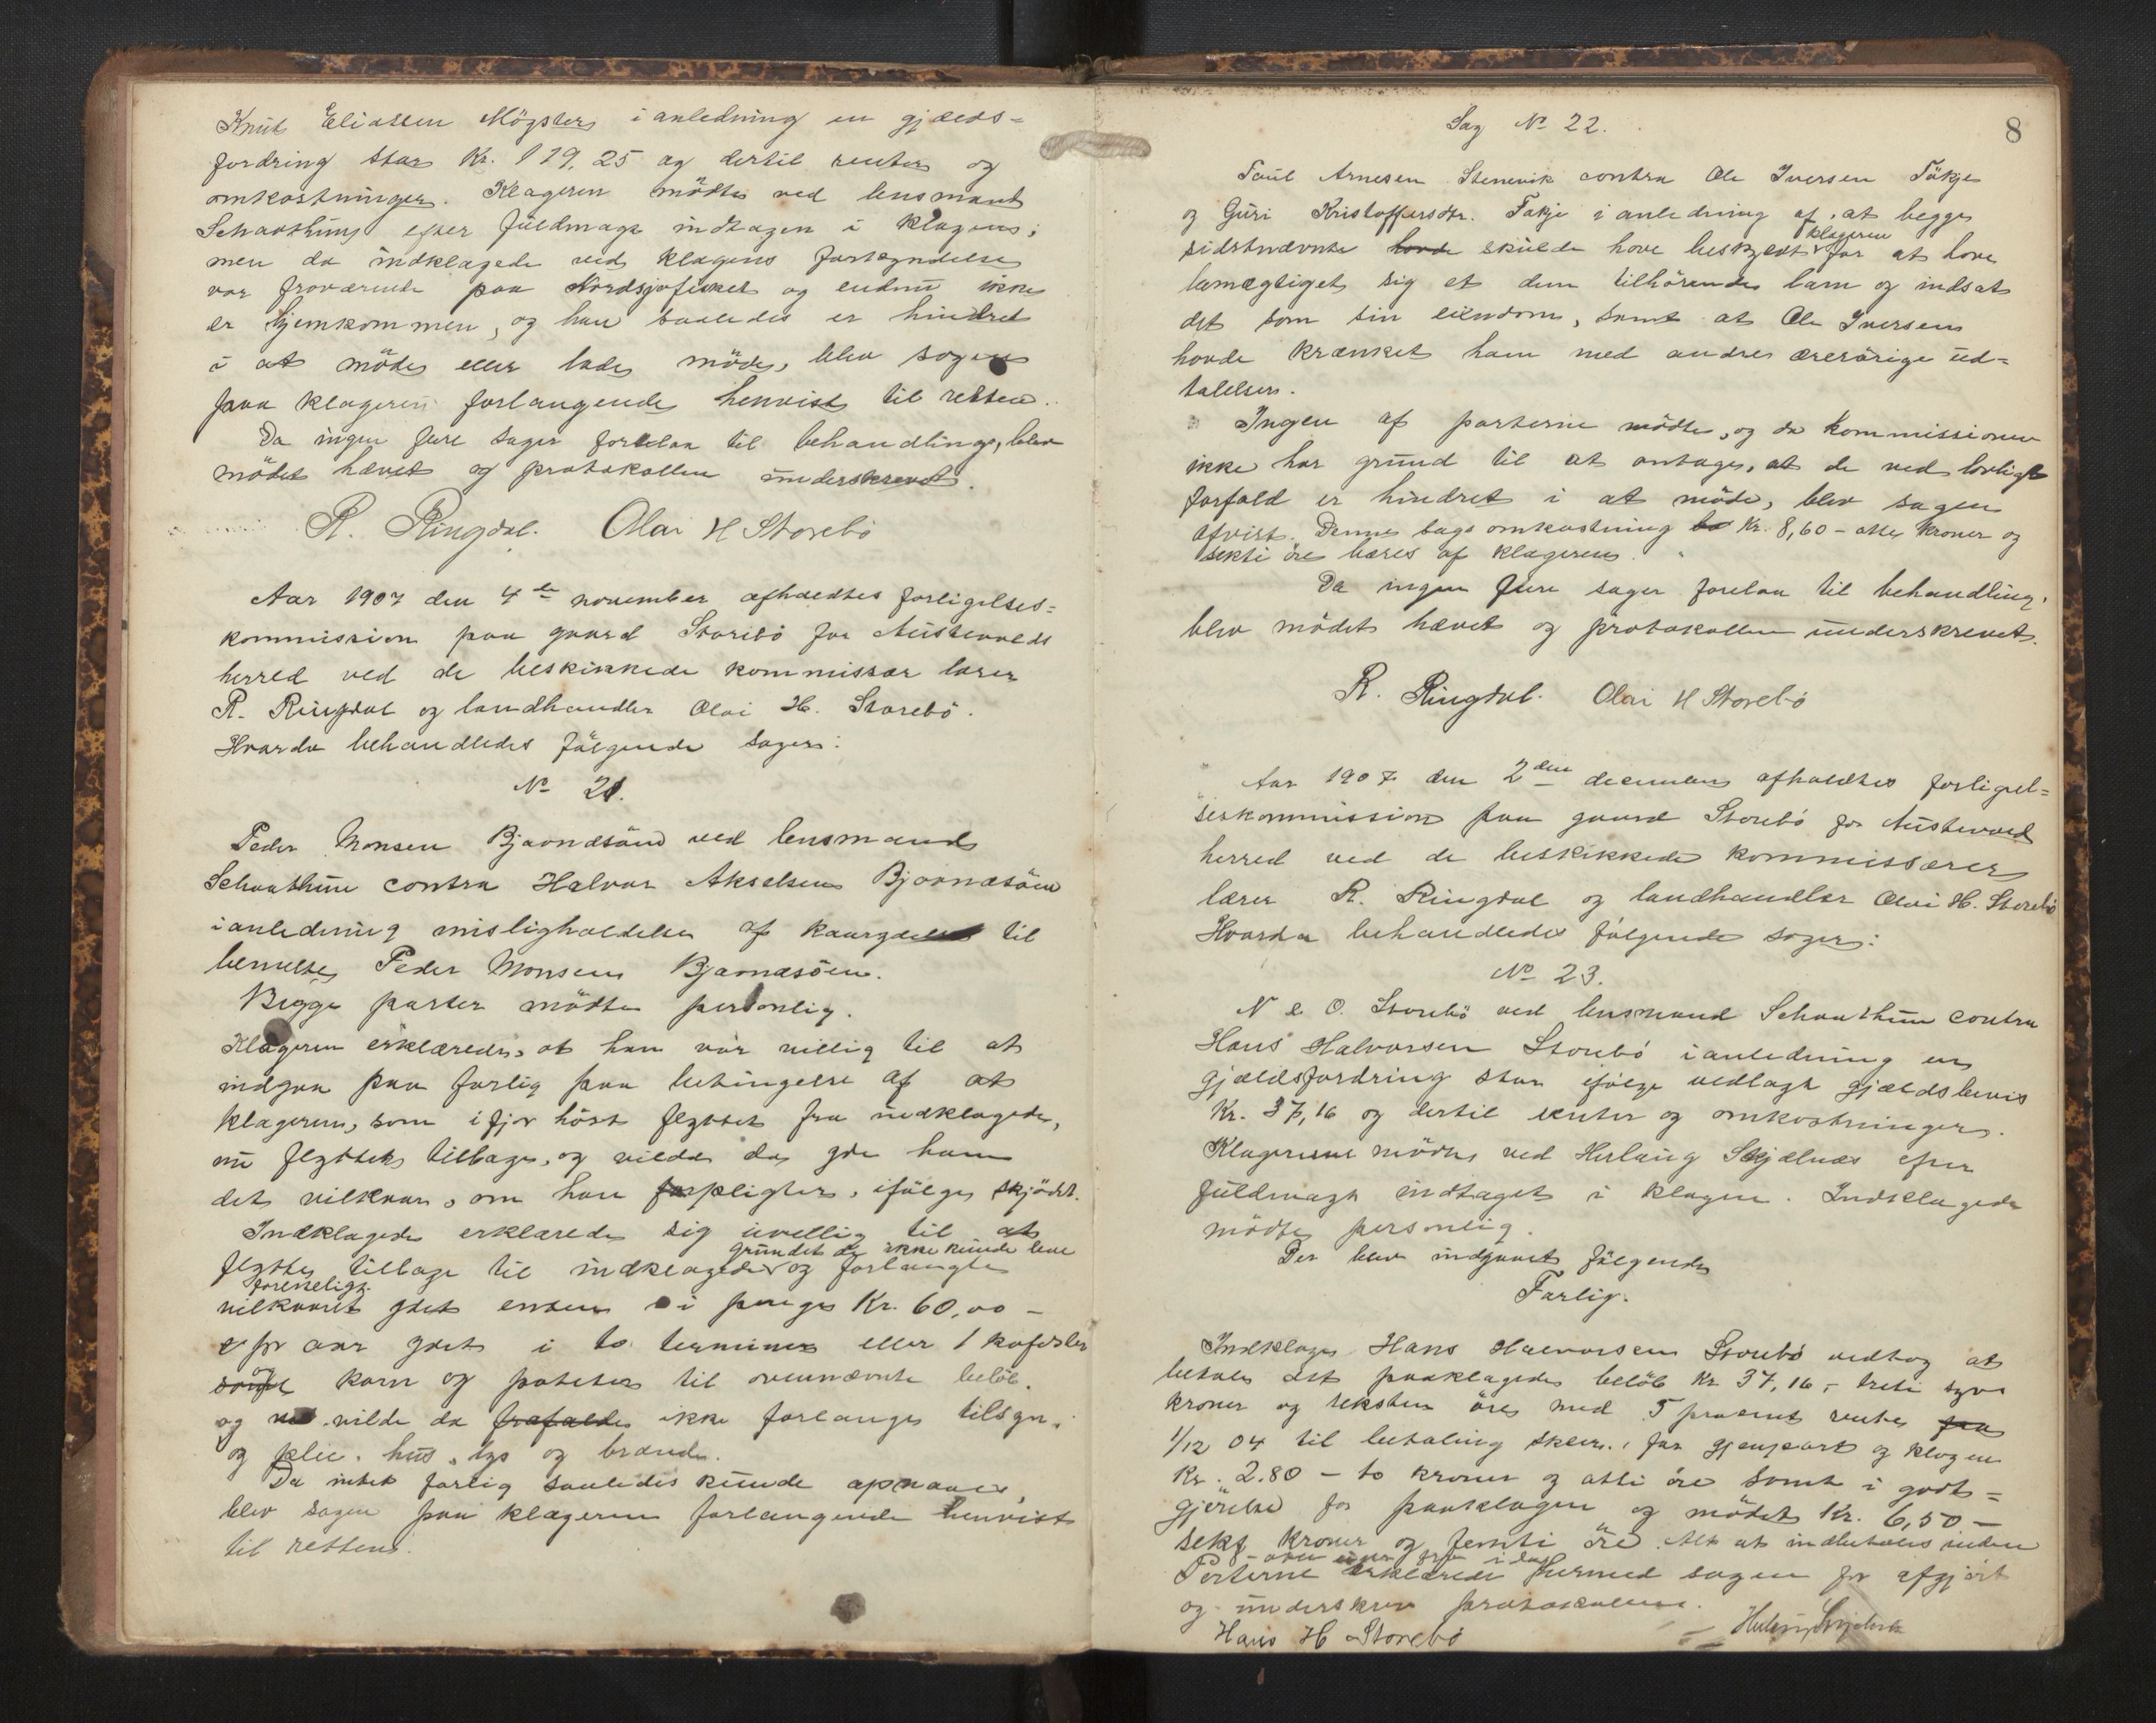 Knut Eliassen Mögster i anledning en gjælds-
fordring stor Kr. 119,25 og dertil renter og
omkostninger. Klageren mödte ved lensmand
Schaathun efter fuldmagt indtagen i klagens;
men da indklagede ved klagens forkyndelse
var fraværende paa Nordsjøfisket og endnu ikke
er hjemkommen, og han saaledes er hindret
i at möde eller lade möde, blev sagen
paa klagerens forlangende henvist til retten.
Da ingen flere sager forelaa til behandling, blev
mödet hævet og protokollen underskrevet.
R. Ringdal. Olai H Storebö
Aar 1907 den 4de november afholdtes forligelses-
kommission paa gaard Storebö for Austevolds
herred ved de beskikkede kommissær lærer
R. Ringdal og landhandler Olai H. Storebö.
Hvorda behandledes fölgende sager:
No 21.
Peder Monsen Bjaanæsöen ved lensmand
Schaathun contra Halvor Akselsen Bjaanæsöen
i anledning misligholdelse af til
bemeldte Peder Monsen Bjaanæsöen.
Begge parter mödte personlig.
Klageren erklærede, at han var villig til at
indgaa paa forlig paa betingelse af at
klageren, som ifjor höst flyttet fra indklagede,
nu flyttede tilbage, og vilde da yde ham
det vilkaar, som han forpligter, ifölge skjödet.
Indklagede erklærede sig uvillig til at
grundet de ikke kunde leve
flytte tilbage til indklagede og forlangte
foreneligt
vilkaaret ydet enten i penge Kr. 60,00 -
pr aar ydet i to terminer eller 1 kofoster
korn og poteter til ovennævnte belöb.
og vilde da frafalde ikke forlange tilsyn.
og pleie, hus, lys og brænde.
Da intet forlig saaledes kunde opnaaes,
blev sagen paa klagerens forlangende henvist
til rettens.
8
Sag No 22.
Poul Arnesen Stenevik contra Ole Iversen Tökje
og Guri Kristoffersdtr. Tökje i anledning af, at begge
klageren
sidstnævnte havde skulde have beskyldt for at have
bemægtiget sig et dem tilhörende lam og indsat
det som sin eiendom, samt at Ole Iversen
havde krænket ham med andre ærerörige ud-
talelser.
Ingen af parterne mödte, og da kommissionen
ikke har grund til at antage, at de ved lovligt
forfald er hindret i at möde, blev sagen
afvist. Denne sags omkostning Kr. 8,60 - otte kroner og
seksti öre bæres af klageren.
Da ingen flere sager forelaa til behandling,
blev mödet hævet og protokollen underskrevet.
R. Ringdal. Olai H Storebö
Aar 1907 den 2den december afholdtes forligel-
seskommission paa gaard Storebö for Austevold
herred ved de beskikkede kommissærer
lærer R. Ringdal og landhandler Olai H. Storebö
Hvorda behandledes fölgende sager:
No 23.
N & O. Storebö ved lensmand Schaathun contra
Hans Halvorsen Storebö i anledning en
gjældsfordring stor ifölge vedlagt gjældsbevis
Kr. 37,16 og dertil renter og omkostninger.
Klagerene mödte ved Herlaug Skjælnæs efter
fuldmagt indtaget i klagen. Indklagede
mödte personlig.
Der blev indgaaet fölgende
Forlig.
Indklagede Hans Halvorsen Storebö vedtog at
betale det paaklagede belöb Kr. 37,16,- treti syv
kroner og seksten öre med 5 procent rente fra
1/12 04 til betaling skeer, for gjenpart og klagen
Kr. 2.80 - to kroner og otti öre samt i godt-
gjörelse for paaklagen og mödet Kr. 6,50 -
seks kroner og femti öre. Alt at indbetales inden
fra idag
Parterne erklærede hermed sagen for afgjört
og underskrev protokollen.
Hans H Storebö